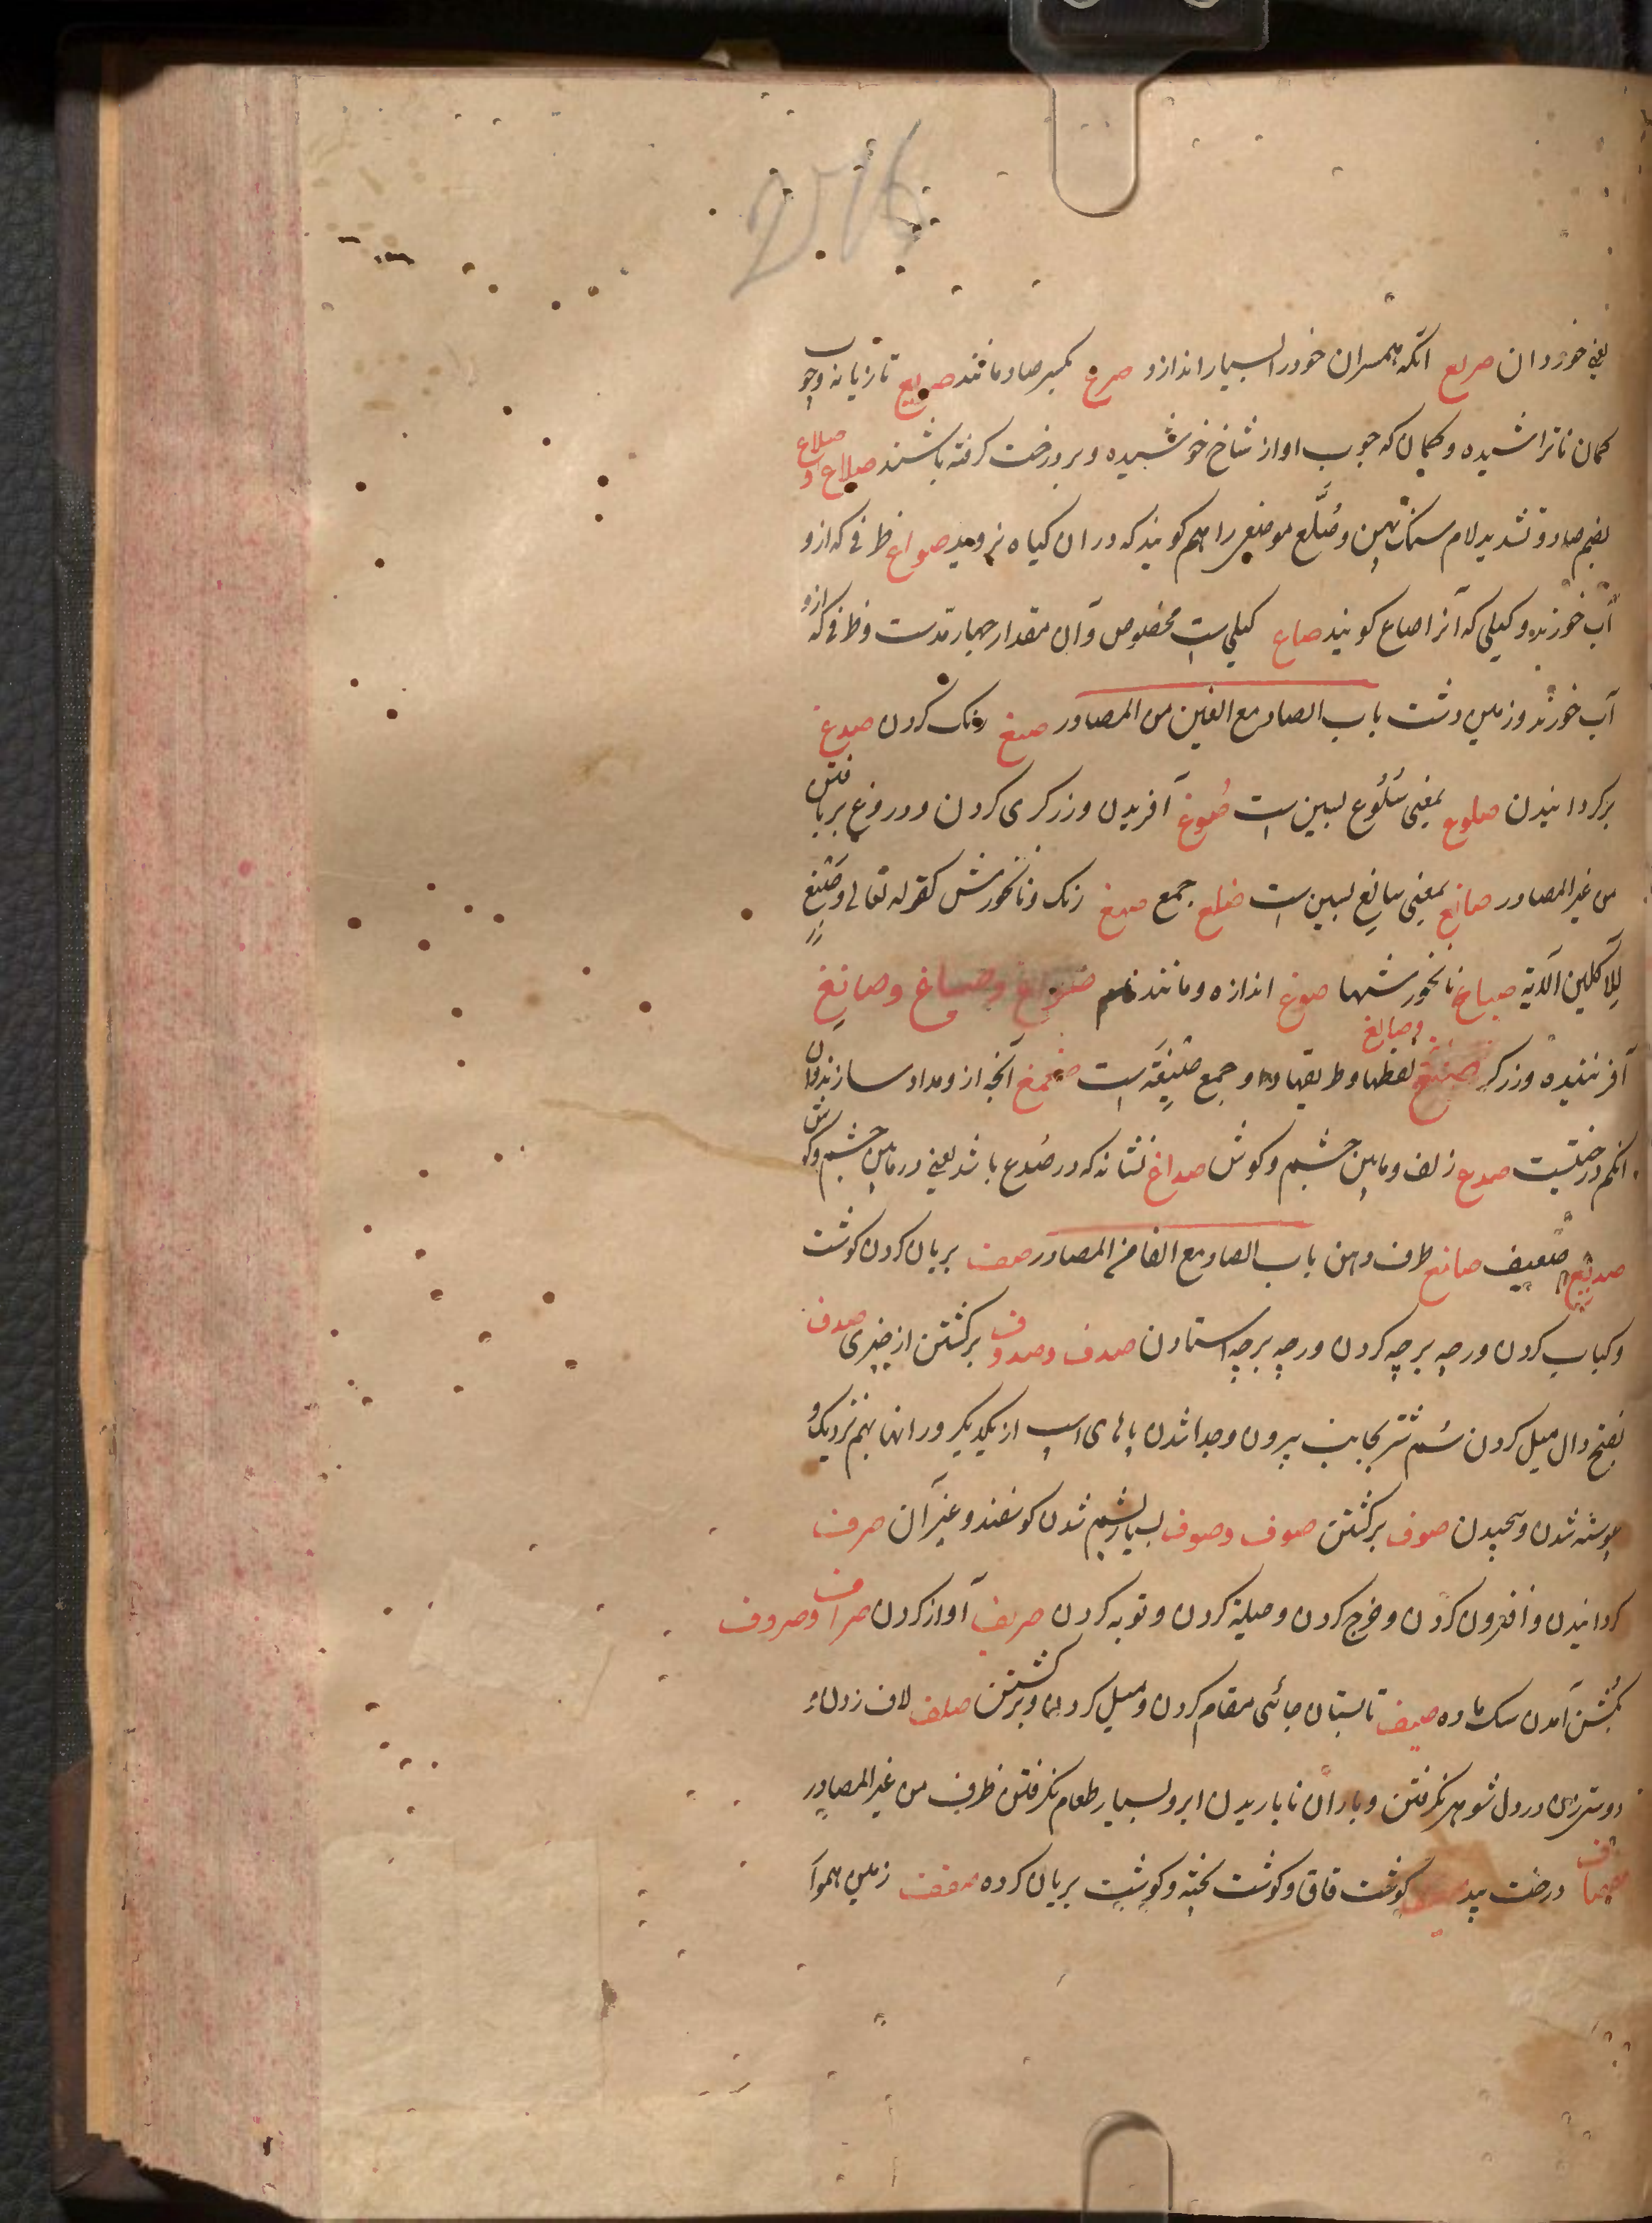 276
یعنی خوردان صریع آنکه همسران خود را بسیار اندازد صرع بکسر صاد مانند صریع تازیانه و چوب
کمان ناتراشیده و کمان که چوب او از شاخ خوشیده و بر درخت گرفته باشند صلاع و صلاع
بضم صاد و تشدید لام سنگ پهن و صُلَّع موضعی را هم گویند که در آن گیاه نروید صواع ظرفی که ازو
آب خورند و کیلی که آنرا صاع گویند صاع کیلی است مخصوص و آن مقدار چهار مدست و ظرفی که ازو
آب خورند و زمین دشت باب الصاد مع الغین من المصادر صبغ رنگ کردن صدغ
برگردانیدن صلوغ بمعنی سُلُوغ بسین است صَوغ آفریدن و زرگری کردن و دروغ بر بافتن
من غیر المصادر صالغ بمعنی سالغ بسین است صلغ جمع صبغ رنگ و نانخورش کقوله تعالی وصبغ
للآکلین الآیة صباغ نانخورشها صوغ اندازه و مانند صواغ و صباغ و صائغ
آفریننده و زرگر صیغ لفظها و طریقها و او جمع صیغة است صمغ آنچه ازو مداد سازند و آن
انگم درختیست صدغ زلف و مابین چشم و گوش صداغ نشانه که در صُدغ باشد یعنی در مابین چشم و گوش
صدیغ ضعیف صامغ طرف دهن باب الصاد مع الفا من المصادر صف بریان کردن گوشت
و کباب کردن و رچه بر چه کردن و رچه بر چه استادن صدف و صدوف برگشتن از چیزی صدف
بفتح دال میل کردن سُم شتر بجانب بیرون و جدا شدن پاهای اسپ از یکدیگر و رانها بهم نزدیک و
پیوسته شدن و پیچیدن صوف برگشتن صوف و صوف بسیار پشم شدن گوسفند و غیر آن صرف
گردانیدن و افزون کردن و خرج کردن و حیلة کردن و توبه کردن صریف آواز کردن صراف و صروف
بگُشن آمدن سگ ماده صیف تابستان جائی مقام کردن و میل کردن و برگشتن صلف لاف زدن و
دوستی زن در دل شوهر نگرفتن و باران ناباریدن ابر و بسیار طعام نگرفتن ظرف من غیر المصادر
صفصاف درخت بید گوشت قاق و گوشت پخته و گوشت بریان کرده صفصف زمین هموار